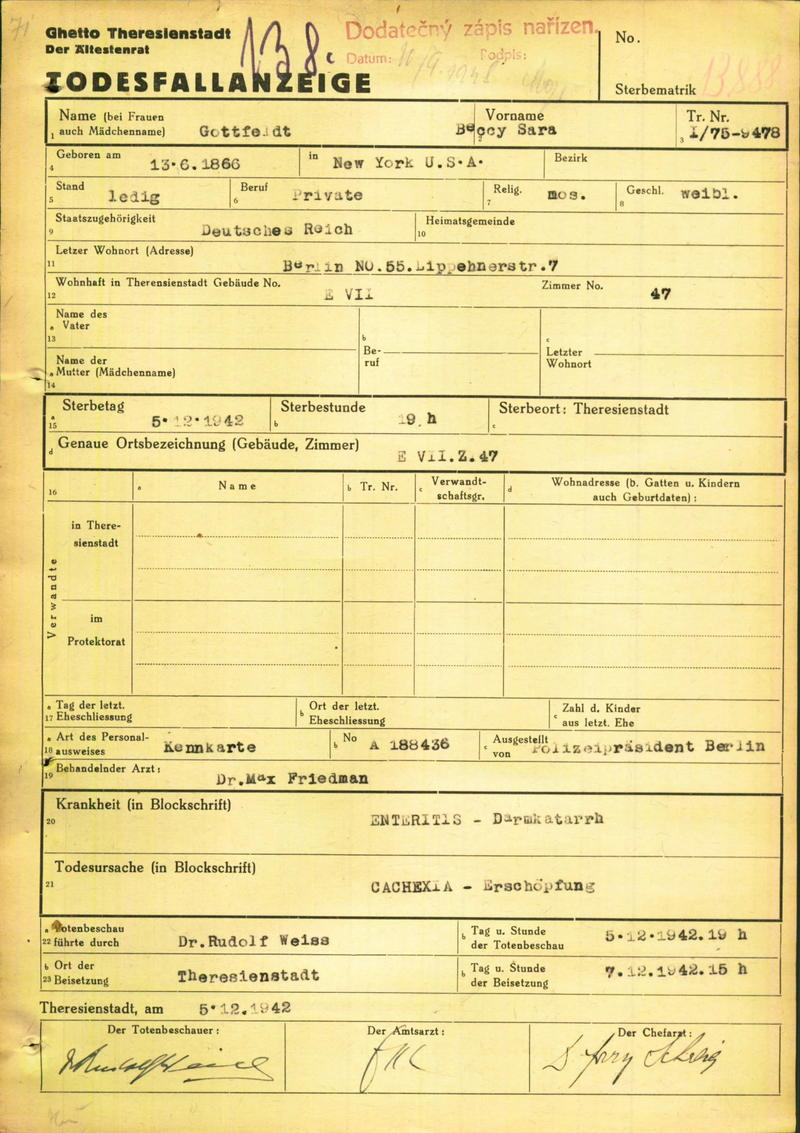 Ghetto Theresienstadt
Der Ältestenrat
TODESFALLANZEIGE
138
Dodatečný zápis nařízen.
Datum: Podpis:
No.
Sterbematrik 13888
Name (bei Frauen auch Mädchenname) Gottfeldt
Vorname Beccy Sara
Tr. Nr. I/75-9478
1 3
Geboren am 13.6.1866 in New York U.S.A. Bezirk
4
Stand ledig Beruf Private Relig. mos. Geschl. weibl.
5 6 7 8
Staatszugehörigkeit Deutsches Reich Heimatsgemeinde
9 10
Letzer Wohnort (Adresse)
11 Berlin NO.55.Lippehnerstr.7
Wohnhaft in Therensienstadt Gebäude No. E VII Zimmer No. 47
12
Name des
a Vater
13
b Beruf
c Letzter Wohnort
Name der
a Mutter (Mädchenname)
14
a Sterbetag 5.12.1942 b Sterbestunde 19.h c Sterbeort: Theresienstadt
15
d Genaue Ortsbezeichnung (Gebäude, Zimmer) E VII.Z.47
16 a Name b Tr. Nr. c Verwandt-schaftsgr. d Wohnadresse (b. Gatten u. Kindern auch Geburtdaten):
Verwandte
in There-
sienstadt
im
Protektorat
a Tag der letzt. b Ort der letzt. c Zahl d. Kinder
17 Eheschliessung Eheschliessung aus letzt. Ehe
a Art des Personal- b No c Ausgestellt
18 ausweises Kennkarte A 188436 von Polizeipräsident Berlin
Behandelnder Arzt:
19 Dr.Max Friedman
Krankheit (in Blockschrift)
20 ENTERITIS - Darmkatarrh
Todesursache (in Blockschrift)
21 CACHEXIA - Erschöpfung
a Totenbeschau b Tag u. Stunde
22 führte durch Dr.Rudolf Weiss der Totenbeschau 5.12.1942.19 h
b Ort der b Tag u. Stunde
23 Beisetzung Theresienstadt der Beisetzung 7.12.1942.15 h
Theresienstadt, am 5.12.1942
Der Totenbeschauer: Der Amtsarzt: Der Chefarzt: